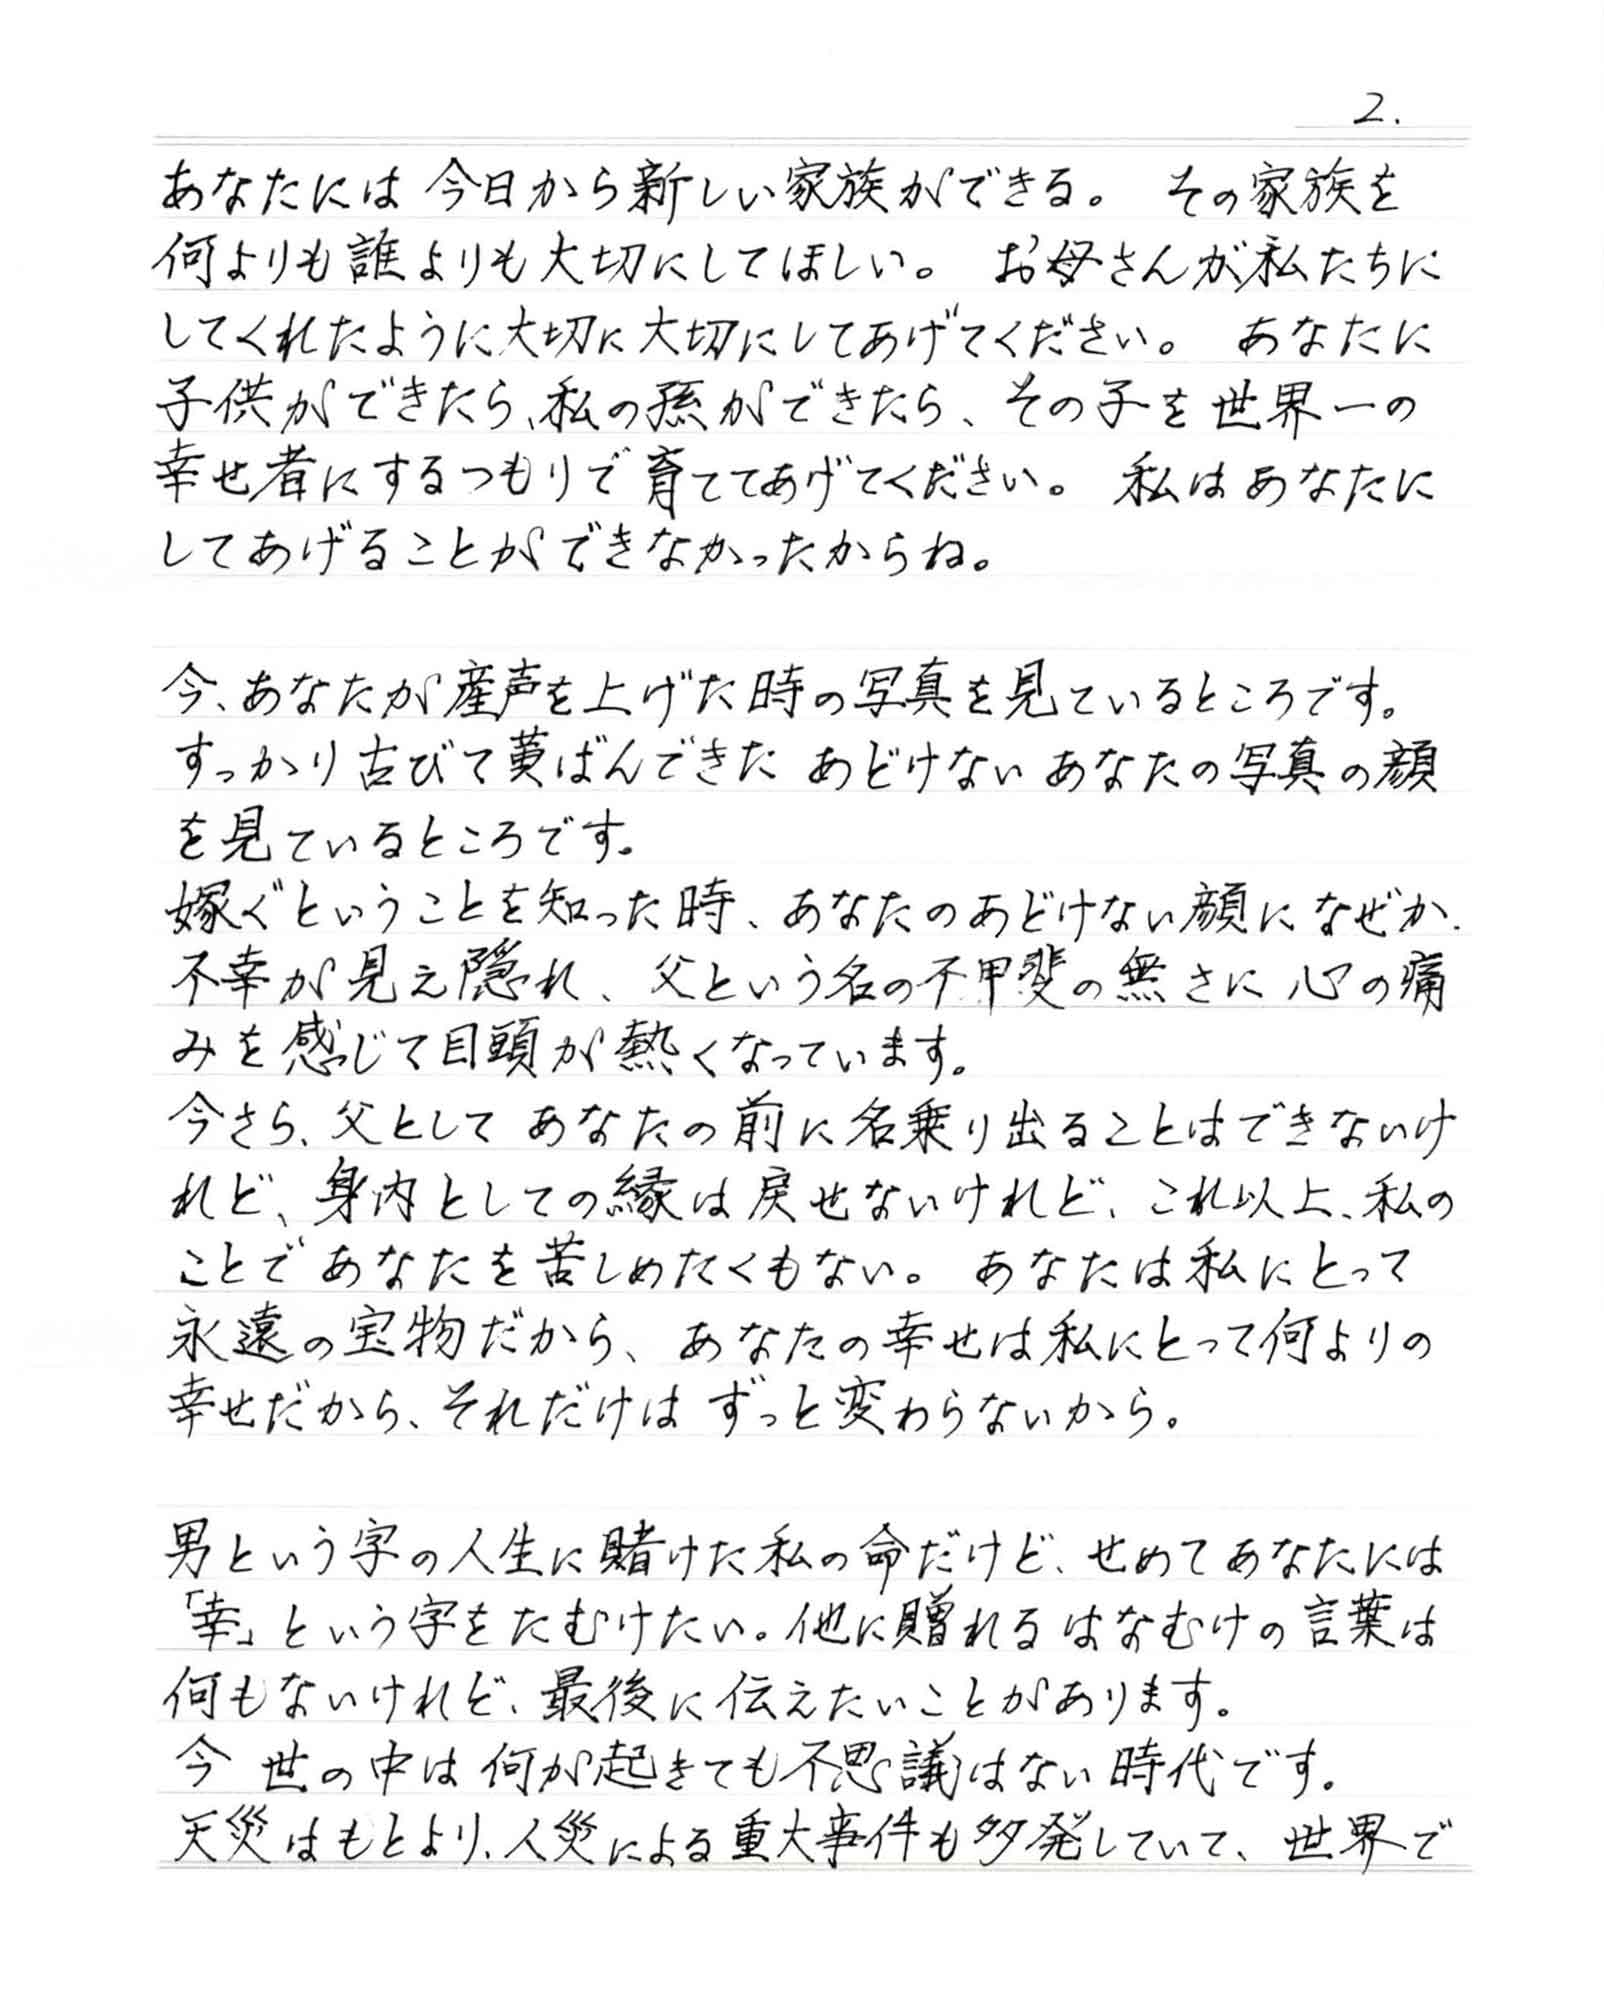 2.
あなたには 今日から新しい家族ができる。 その家族を
何よりも誰よりも大切にしてほしい。 お母さんが私たちに
してくれたように大切に大切にしてあげてください。 あなたに
子供ができたら、私の孫ができたら、その子を世界一の
幸せ者にするつもりで育ててあげてください。 私はあなたに
してあげることができなかったからね。
今、あなたが産声を上げた時の写真を見ているところです。
すっかり古びて黄ばんできた あどけないあなたの写真の顔
を見ているところです。
嫁ぐということを知った時、あなたのあどけない顔になぜか、
不幸が見え隠れ、父という名の不甲斐の無さに心の痛
みを感じて目頭が熱くなっています。
今さら、父として あなたの前に名乗り出ることはできないけ
れど、身内としての縁は戻せないけれど、これ以上、私の
ことで あなたを苦しめたくもない。 あなたは私にとって
永遠の宝物だから、あなたの幸せは私にとって何よりの
幸せだから、それだけは ずっと変わらないから。
男という字の人生に賭けた私の命だけど、せめてあなたには
「幸」という字をたむけたい。他に贈れるはなむけの言葉は
何もないけれど、最後に伝えたいことがあります。
今 世の中は何が起きても不思議はない時代です。
天災はもとより、人災による重大事件も多発していて、世界で